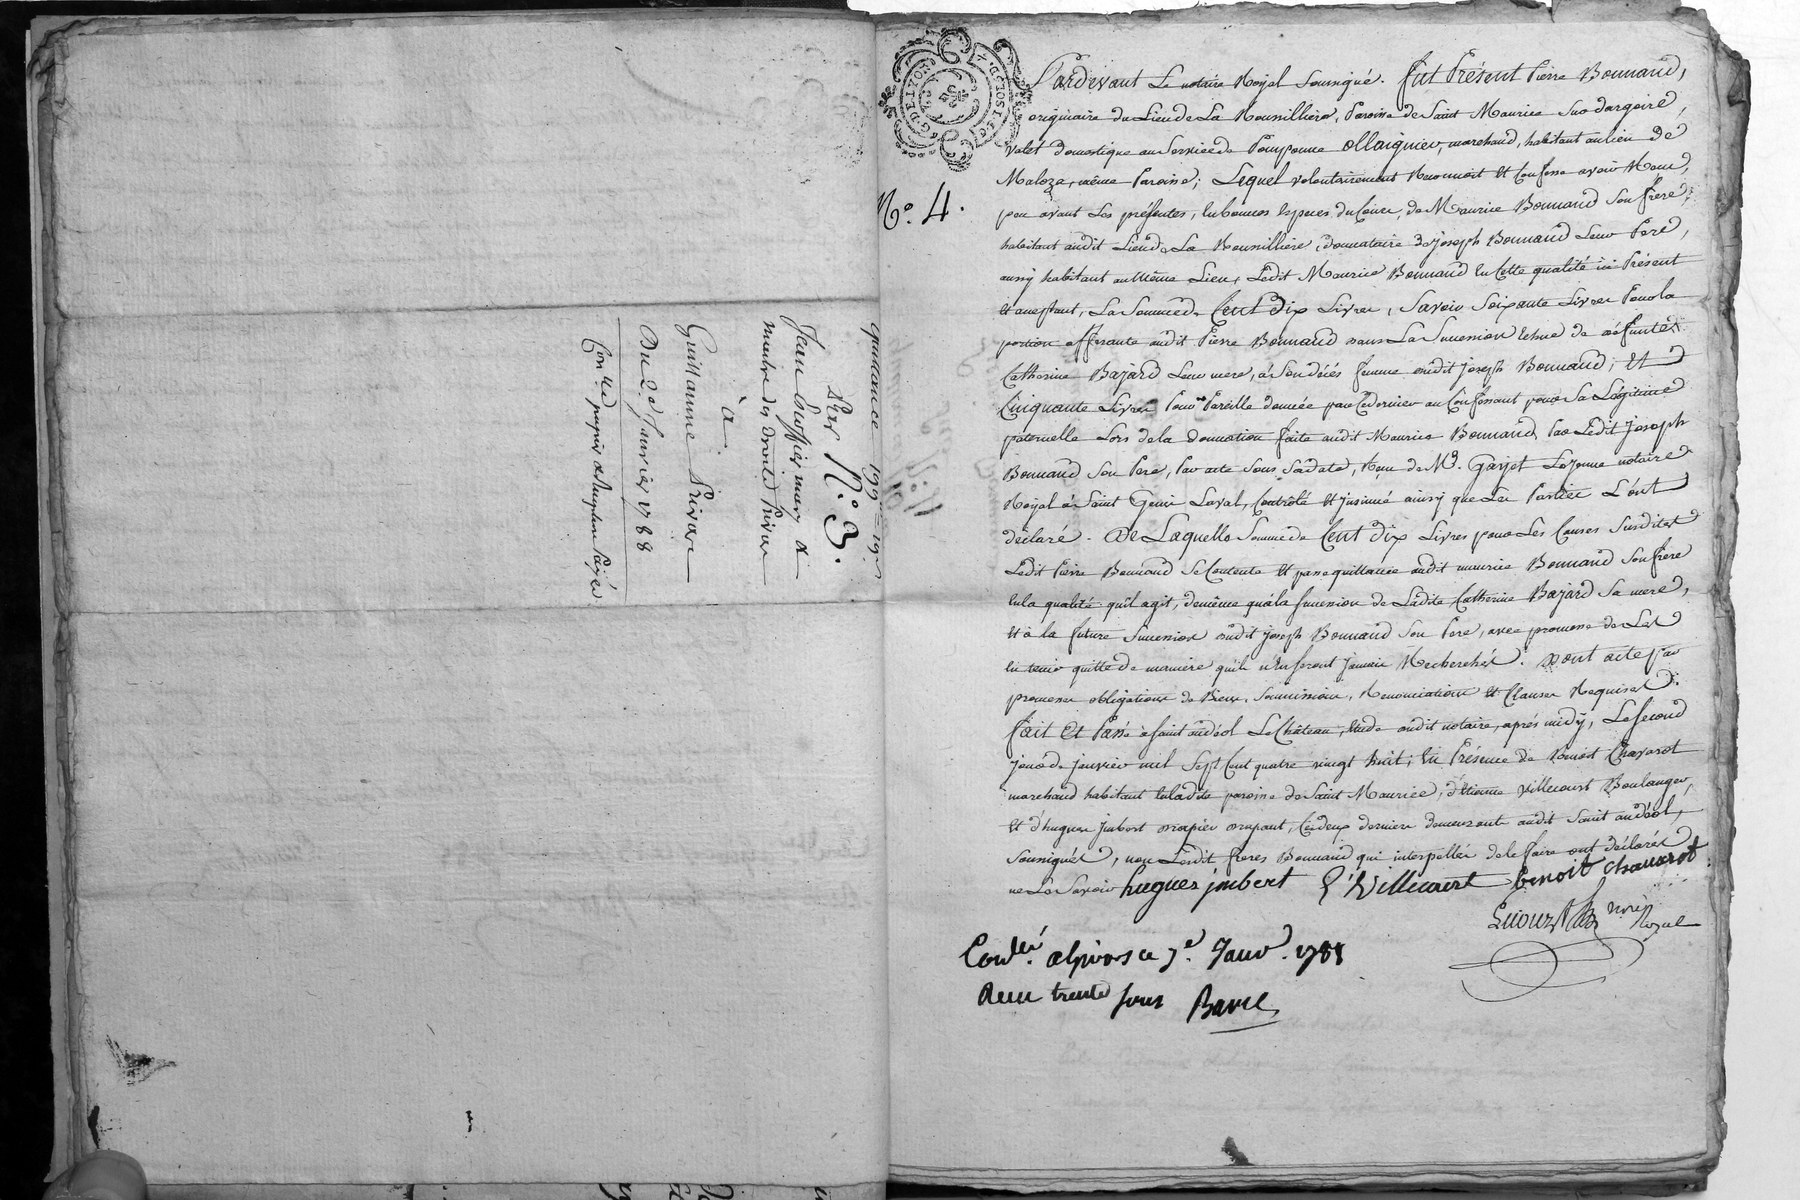 quittance 199#=19s
N.º 3.
Par
Jean
maitre des droits Privar
à
Guillaume Privar
Du 2e. Janvier 1788
Con.lle papier & Payés
G. DE LYON
N.º 4.
Pardevant Le notaire Royal soussigné. fut Présent Pierre Bonnand,
originaire du Lieu de La Rousillière, Paroisse de Saint Maurice sur dargoire,
valet domestique au Service de Pomponne ollaignier, marchand, habitant au lieu de
Maloza, même Paroisse; Lequel volontairement Reconnoit et Confesse avoir Reçu,
peu avant Les présentes, en bonnes Especes du Cours, de Maurice Bonnand son frere,
habitant audit Lieu de La Rousillière, donnataire de joseph Bonnand Leur Pere,
aussy habitant au même Lieu, Ledit Maurice Bonnand en Cette qualité ici Présent
et acceptant, La Somme de Cent Dix Livres, Savoir Soixante Livres Pour la
portion afferante audit Pierre Bonnand dans La Succession échue de défunte
Catherine Bajard Leur mere, à son décés femme audit joseph Bonnand; et
Cinquante Livres Pour Pareille donnée par Ce dernier au Confessant pour Sa Légitime
paternelle Lors de la donnation faite audit Maurice Bonnand Par Ledit joseph
Bonnand son Pere, Par acte Sous Sa date, Reçu de Me. Garjet Le jeune notaire
Royal à Saint Genis Laval, Controlé et jnsinué ainsy que Les Parties L'ont
déclaré. De Laquelle Somme de Cent dix Livres pour Les Causes Susdites
Ledit Pierre Bonnand Se Contente et passe quittance audit maurice Bonnand Son frere
en la qualité qu'il agit, de même qu'à la succession de Ladite Catherine Bajard Sa mere,
et à la future Succession dudit joseph Bonnand Son Pere, avec promesse de Les
en tenir quitte de maniere qu'ils n'en seront jamais Recherchés. Dont acte par
promesses obligations de Biens, Soumissions, Renonciations et Clauses Requises.
fait et Passé à saint andéol Le Château, étude dudit notaire, après midy, Le second
jour de janvier mil Sept Cent quatre vingt huit; En Présence de Benoit Chavarot
marchand habitant en ladite paroisse de Saint Maurice, d'Etienne Villecourt Boulanger,
et d'hugues jmbert drapier drapant, Ces deux derniers demeurants audit Saint andéol,
Soussignés, non Lesdit freres Bonnand qui interpellés de le faire ont déclarés
ne Le Savoir hugues jmbert E. Villecourt benoit chavarot
nore. Royal
Conllé. à Givors ce 7e. Janvr. 1788
Reçu trente sous